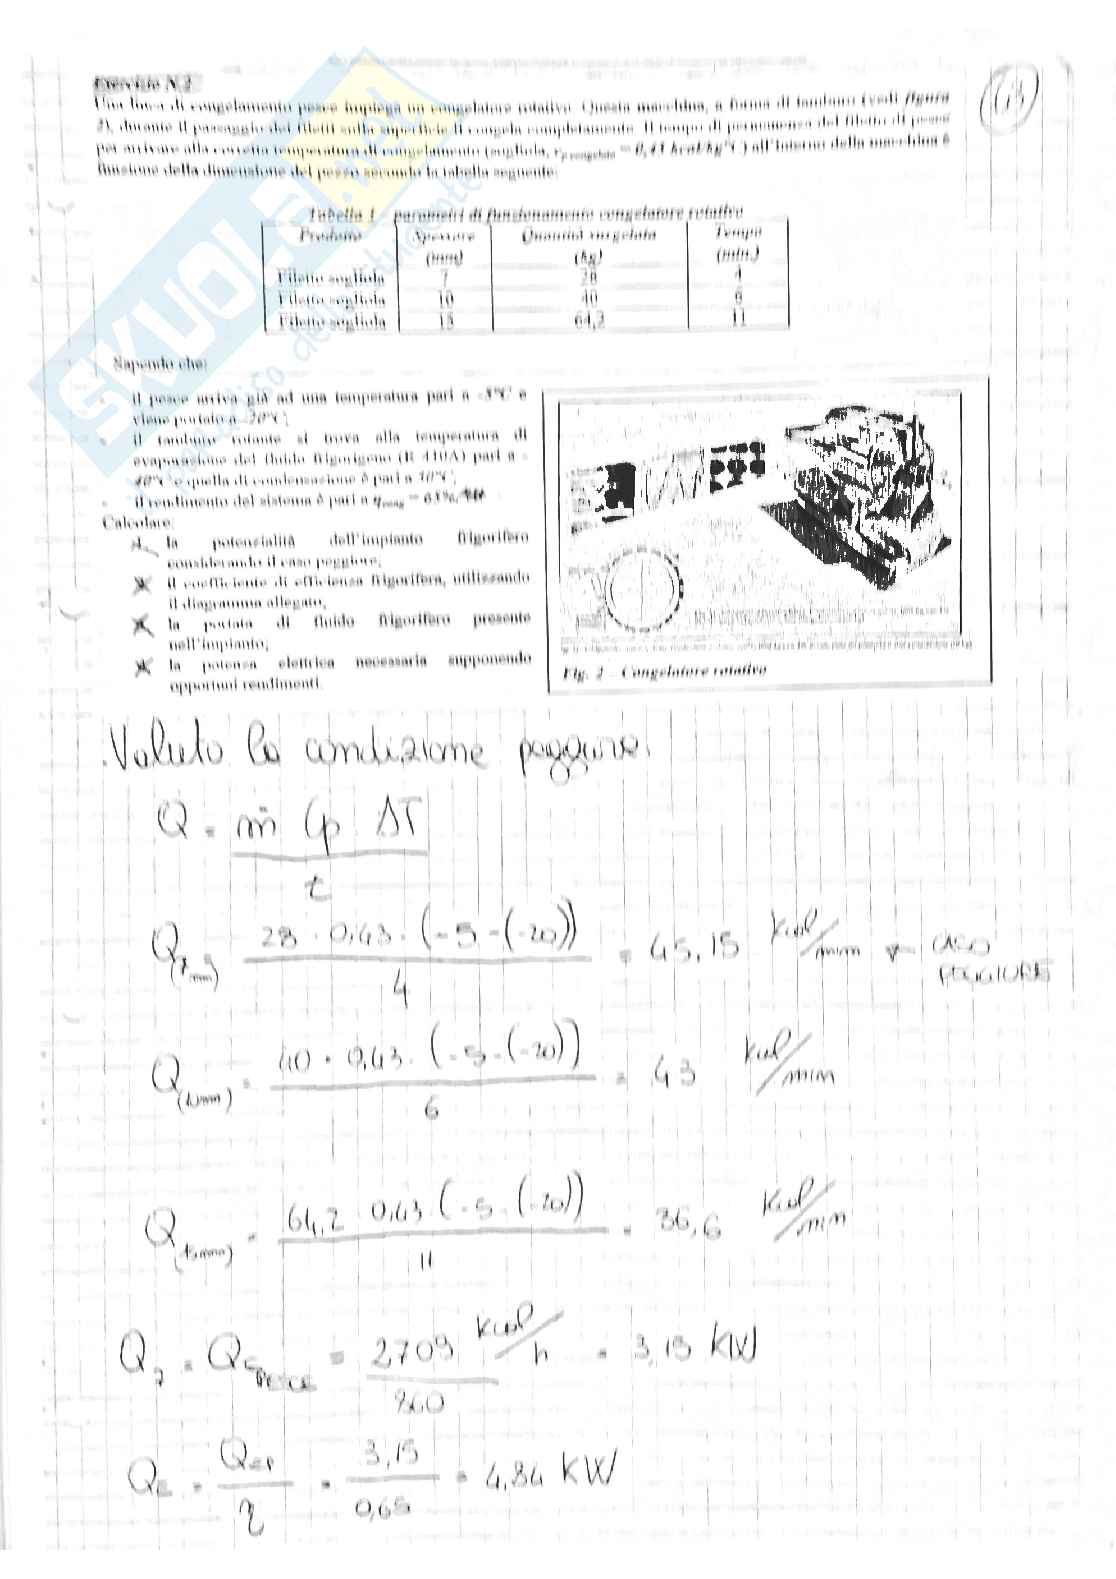 63
Esercizio N.2
Una linea di congelamento pesce impiega un congelatore rotativo. Questa macchina, a forma di tamburo (vedi figura
2), durante il passaggio dei filetti sulla superficie li congela completamente. Il tempo di permanenza del filetto di pesce
per arrivare alla corretta temperatura di congelamento (sogliola, cp congelato = 0,43 kcal/kg°C) all'interno della macchina è
funzione della dimensione del pesce secondo la tabella seguente:
Tabella 1 - parametri di funzionamento congelatore rotativo
Prodotto Spessore Quantità surgelata Tempo
(mm) (kg) (min.)
Filetto sogliola 7 28 4
Filetto sogliola 10 40 6
Filetto sogliola 15 64,2 11
Sapendo che:
- il pesce arriva già ad una temperatura pari a -5°C e
viene portato a -20°C;
- il tamburo rotante si trova alla temperatura di
evaporazione del fluido frigorigeno (R 410A) pari a -
40°C e quella di condensazione è pari a 30°C;
- il rendimento del sistema è pari a η = 65%
Calcolare:
la potenzialità dell'impianto frigorifero
considerando il caso peggiore;
il coefficiente di efficienza frigorifera, utilizzando
il diagramma allegato;
la portata di fluido frigorifero presente
nell'impianto;
la potenza elettrica necessaria supponendo
opportuni rendimenti.
Fig. 2 – Congelatore rotativo
SKUOLA.net
Valuto la condizione peggiore.
Q = ṁ Cp ΔT / t
Q(7mm) = 28 · 0,43 · (-5-(-20)) / 4 = 45,15 kcal/min ← CASO PEGGIORE
Q(10mm) = 40 · 0,43 · (-5-(-20)) / 6 = 43 kcal/min
Q(15mm) = 64,2 · 0,43 · (-5-(-20)) / 11 = 36,6 kcal/min
Q7 = QE PESCE = 2709 kcal/h / 860 = 3,15 KW
QE = QEP / η = 3,15 / 0,65 = 4,84 KW